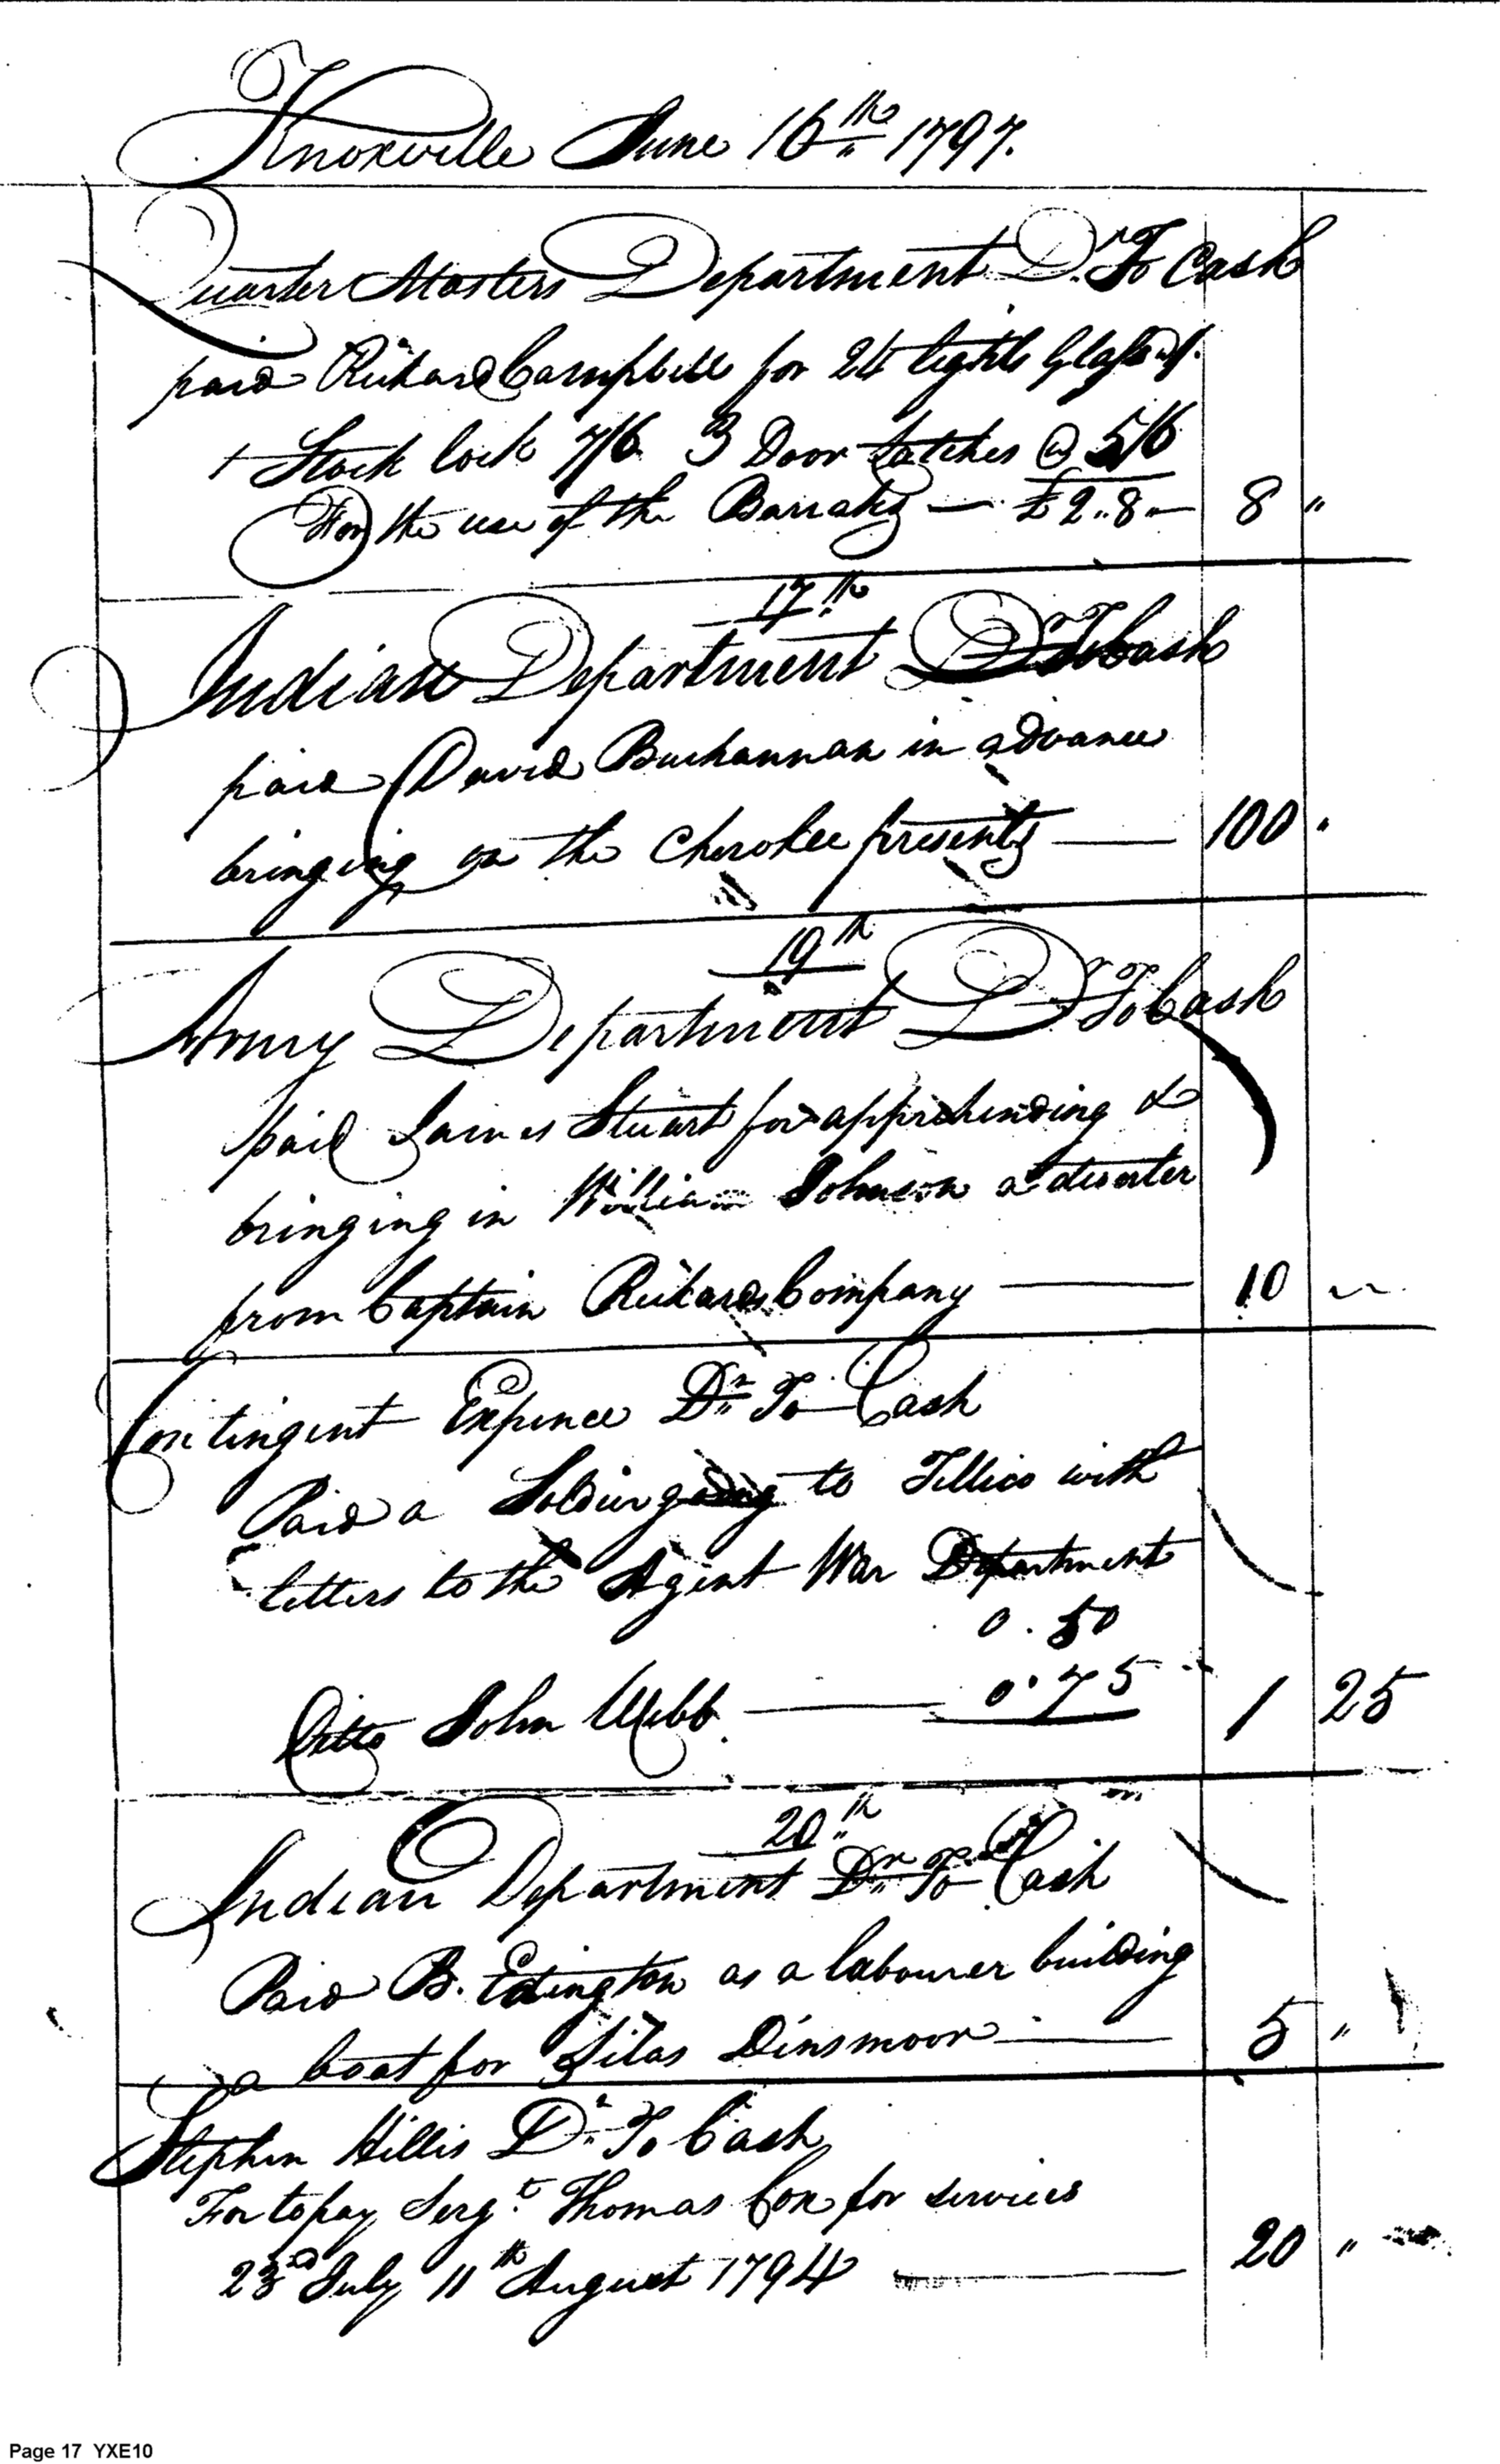 Knoxville June 16th 1797.
Quarter Masters Department Dr. To Cash
paid Rickard Campbell for 24 lights Glass @ 1/.
1 Stock lock 7/6 3 Door Latches @ 5/6
For the use of the Barraks — £2..8..— 8 "
17th
Indian Department Dr To Cash
paid David Buchannan in advance
bringing on the Cherokee presents — 100 "
19th
Army Department Dr To Cash
paid James Stuart for apprehending &
bringing in William Johnson a deserter
from Captain Rickards Company — 10 "
Contingent Expence Dr To Cash
Paid a Soldier going to Tellico with
letters to the Agent War Department
0.50
Ditto John Webb — 0.75 1 25
20th
Indian Department Dr To Cash
Paid B. Edington as a labourer building
a boat for Silas Dinsmoor — 5 "
Stephen Hillis Dr To Cash
For to pay Sergt. Thomas Cox for services
23d July 11th August 1794 — 20 "
Page 17 YXE10